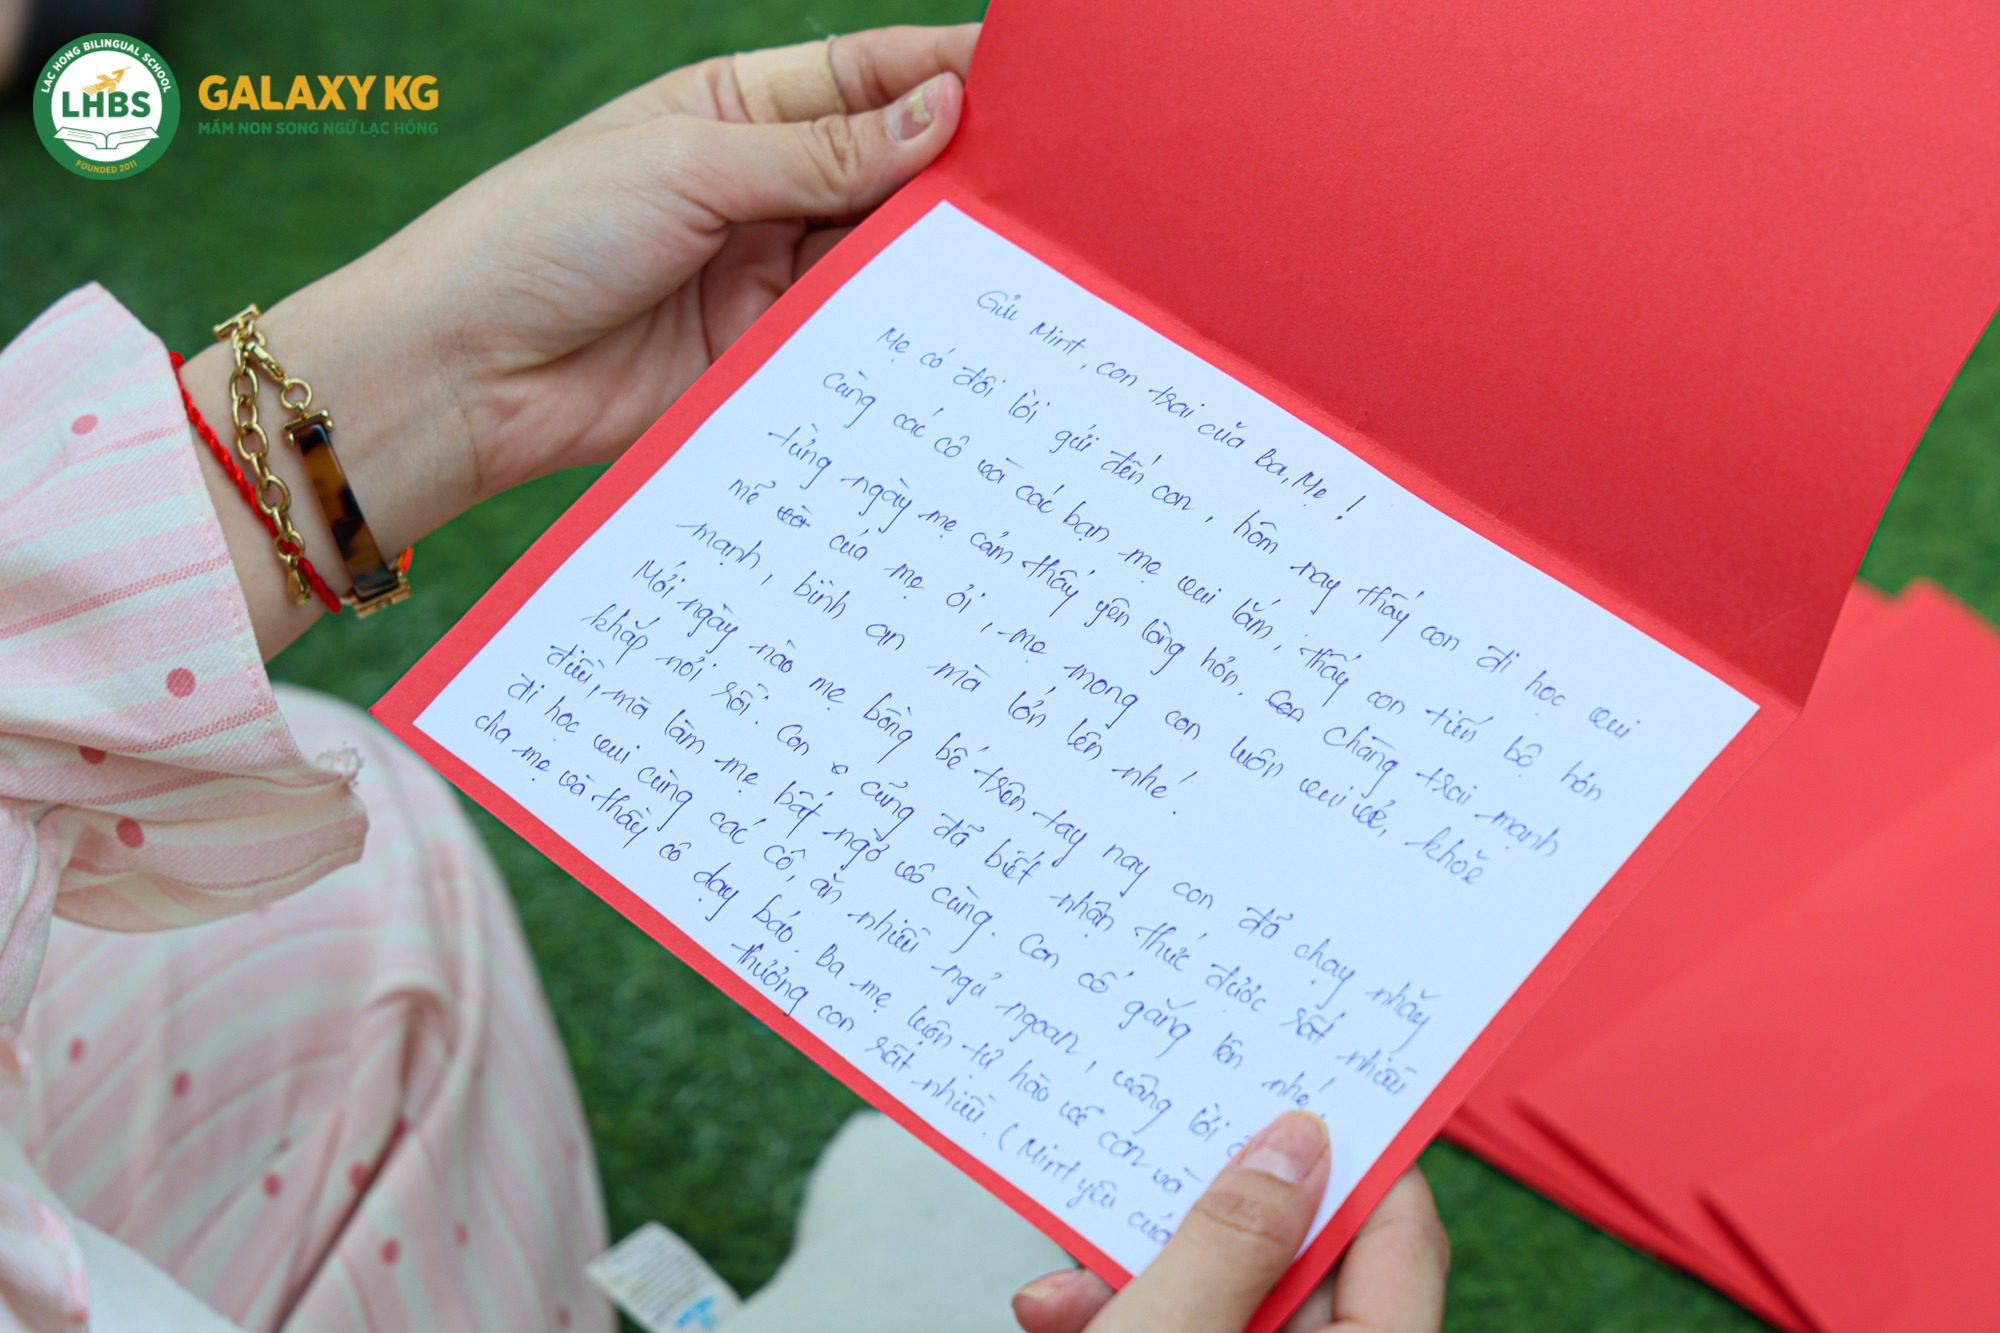 LAC HONG BILINGUAL SCHOOL
LHBS
FOUNDED 2011
GALAXY KG
MẦM NON SONG NGỮ LẠC HỒNG
Gửi Mint, con trai của Ba, Mẹ!
Mẹ có đôi lời gửi đến con, hôm nay thấy con đi học vui
cùng các cô và các bạn mẹ vui lắm, thấy con tiến bộ hơn
từng ngày mẹ cảm thấy yên lòng hơn. Chàng trai mạnh
mẽ của mẹ ơi, mẹ mong con luôn vui vẻ, khoẻ
mạnh, bình an mà lớn lên nhé.
Mới ngày nào mẹ bồng bế trên tay nay con đã chạy nhảy
khắp nơi rồi. Con cũng đã biết nhận thức được rất nhiều
điều, mà làm mẹ bất ngờ vô cùng. Con cố gắng lên nhé.
đi học vui cùng các cô, ăn nhiều ngủ ngoan, vâng lời
cha mẹ và thầy cô dạy bảo. Ba mẹ luôn tự hào về con và
thương con rất nhiều. (Mint yêu của